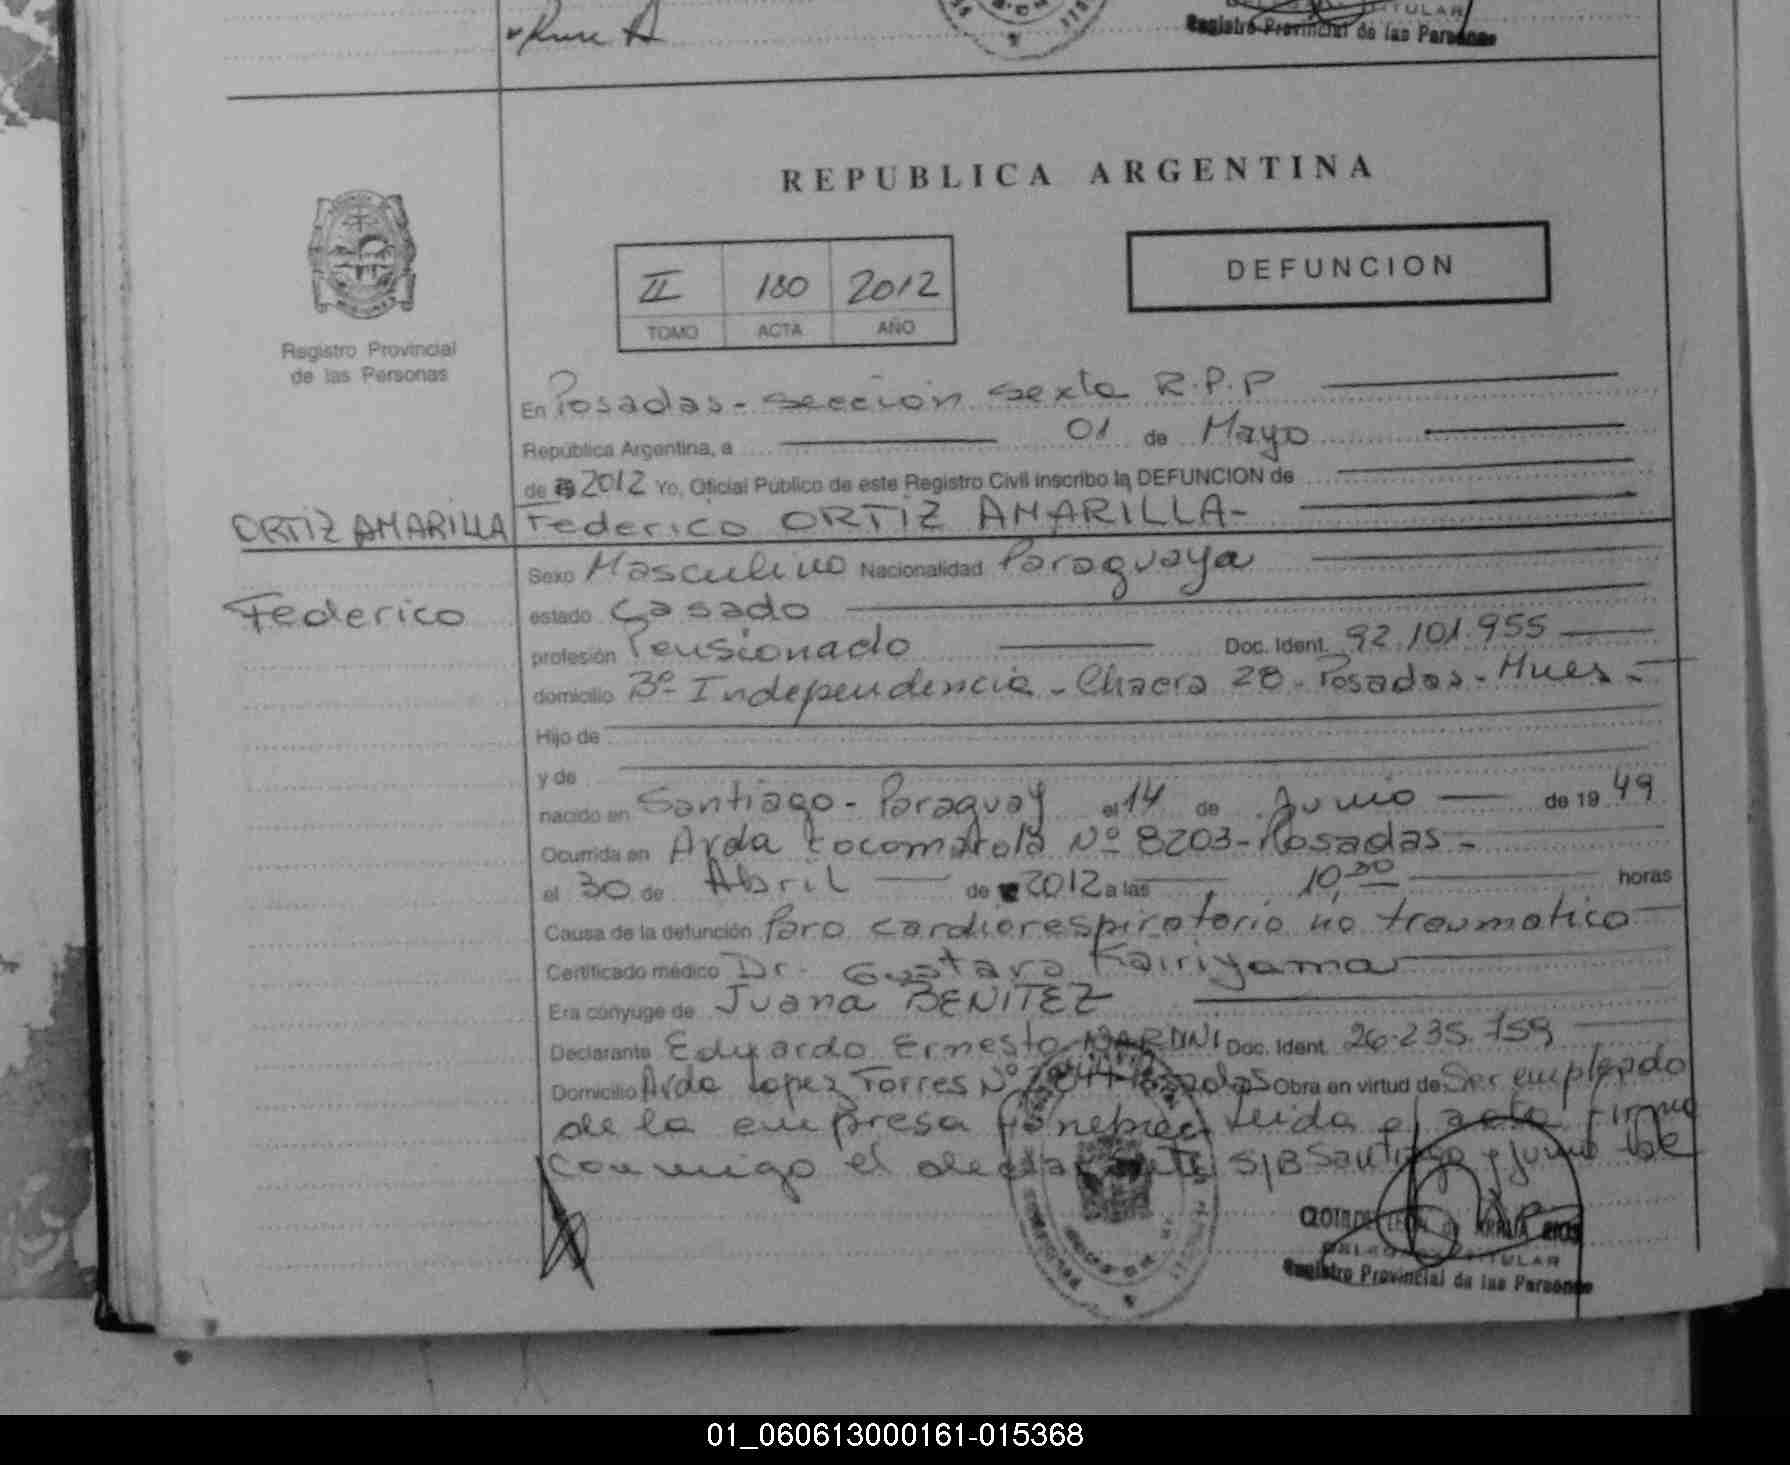 Registro Provincial de las Personas
REPUBLICA ARGENTINA
II 180 2012
TOMO ACTA AÑO
DEFUNCION
Registro Provincial
de las Personas
En Posadas - sección sexta R.P.P
República Argentina, a 01 de Mayo
de 2012 Yo, Oficial Público de este Registro Civil inscribo la DEFUNCION de
ORTIZ AMARILLA Federico ORTIZ AMARILLA-
Sexo Masculino Nacionalidad Paraguaya
Federico
estado Casado
profesión Pensionado Doc. Ident. 92.101.955
domicilio Bº Independencia - Chacra 28 - Posadas - Mnes -
Hijo de
y de
nacido en Santiago - Paraguay el 14 de Junio de 19 49
Ocurrida en Avda cocomarola Nº 8203 - Posadas -
el 30 de Abril de 2012 a las 10,30 horas
Causa de la defunción Paro cardiorespiratorio no traumatico
Certificado médico Dr. Gustavo Kairiyama
Era cónyuge de Juana BENITEZ
Declarante Eduardo Ernesto NARDINI Doc. Ident. 26.235.159
Domicilio Avda Lopez Torres Nº Posadas Obra en virtud de Ser empleado
de la empresa funebre Leida el acta firma
conmigo el declarante S/B Santiago y junio Vale
DELEGADA TITULAR
Registro Provincial de las Personas
01_060613000161-015368